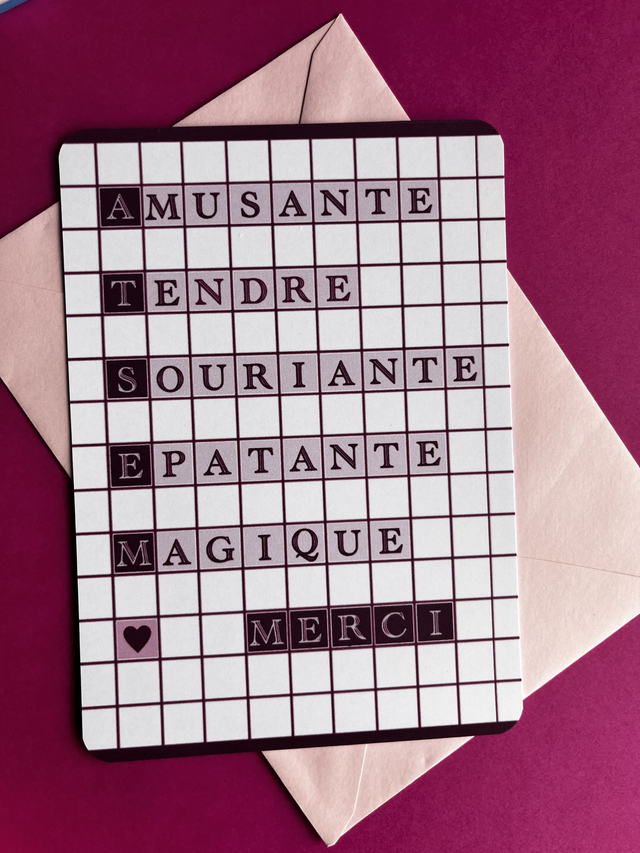 AMUSANTE
TENDRE
SOURIANTE
EPATANTE
MAGIQUE
♥ MERCI